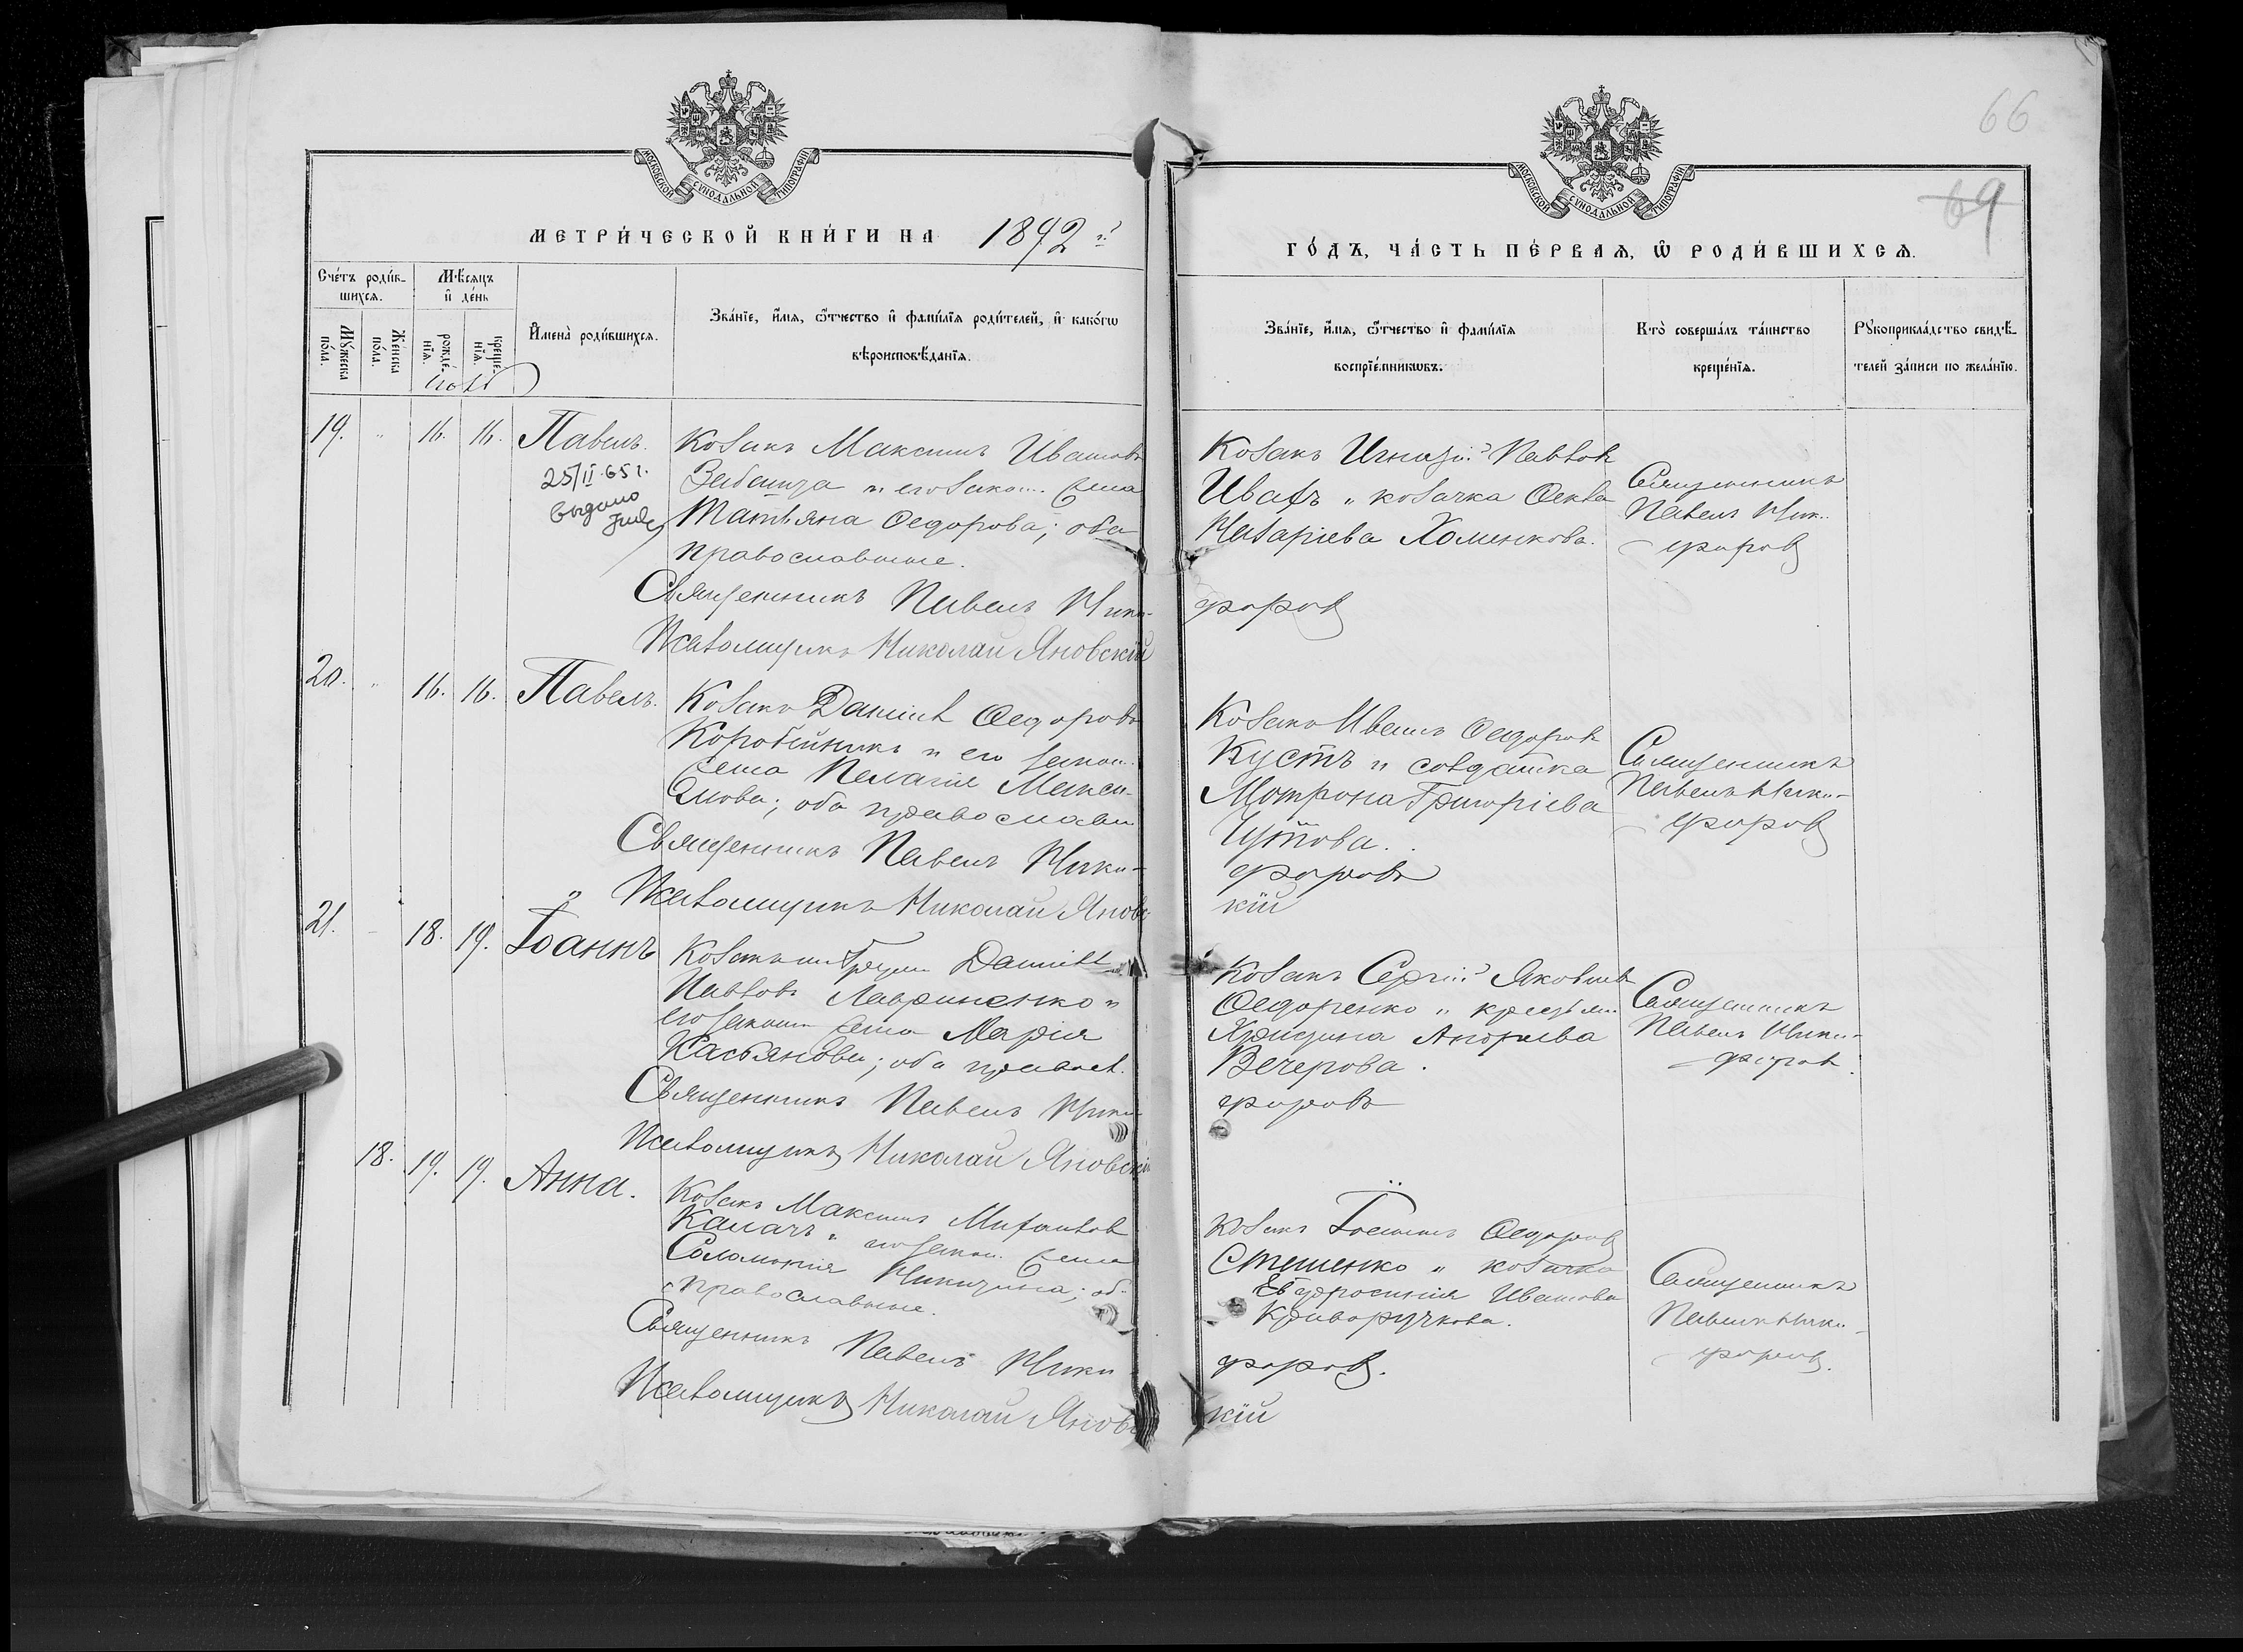 66
69
МОСКОВСКОЙ СѴНОДАЛЬНОЙ ТИПОГРАФІИ
МОСКОВСКОЙ СѴНОДАЛЬНОЙ ТИПОГРАФІИ
МЕТРИ́ЧЕСКОЙ КНИ́ГИ НА 1892 г.
ГО́ДЪ, ЧА́СТЬ ПЕ́РВАѦ, Ѡ҆ РОДИ́ВШИХСѦ.
Сче́тъ роди́в-
шихсѧ.
Мꙋ́жеска
по́ла.
Же́нска
по́ла.
Мѣ́сѧцъ
и҆ де́нь
рожде́-
нїѧ.
креще́-
нїѧ.
И҆мена̀ роди́вшихсѧ.
Зва́нїе, и҆́мѧ, ѻ҆́тчество и҆ фами́лїѧ роди́телей, и҆ како́гѡ
вѣроисповѣ́данїѧ.
Зва́нїе, и҆́мѧ, ѻ҆́тчество и҆ фами́лїѧ
воспрїе́мникѡвъ.
Кто̀ соверша́лъ та́инство
креще́нїѧ.
Рꙋкоприкла́дство свидѣ́-
телей за́писи по жела́нїю.
19. " 16. 16. Павелъ.
25/II 65 г.
выдано
Козакъ Максимъ Ивановъ
и его закон. жена
Татьяна Ѳедорова; оба
православные.
Священникъ Павелъ Ники-
форовъ
Псаломщикъ Николай Яновскій
Козакъ Павлов
Иваѳъ и козачка Ѳекла
Назаріева Хоменкова.
Священникъ
Павелъ Ники-
форовъ
20. " 16. 16. Павелъ.
Козакъ Даніил Ѳедоровъ
Коробейникъ и его закон.
жена Пелагія Макси-
мова; оба православн.
Священникъ Павелъ Ники-
форовъ
Псаломщикъ Николай Яновс
кій
Козакъ Иванъ Ѳедоров
Кустъ и солдатка
Мотрона Григоріева
Священникъ
Павелъ Ники-
форовъ
21. 18. 19. Іоаннъ
Козакъ Даниил
Павловъ Лавриненко и
его закон. жена Марія
Касьянова; оба правосл.
Священникъ Павелъ Ники
форовъ
Псаломщикъ Николай Яновскій
Козакъ Сергій Яковлев
Ѳедоренко и
Вечерова.
Священникъ
Павелъ Ники-
форов.
18. 19. 19. Анна.
Козакъ Максимъ
Калачъ и его закон. жена
Соломонія Никитина; об.
православные.
Священникъ Павелъ Ники
форовъ.
Псаломщикъ Николай Яновс
кій
Козакъ Іоаннъ Ѳедоровъ
Стешенко и козачка
Евфросинія Иванова
Криворучкова.
Священникъ
Павелъ Ники-
форовъ.